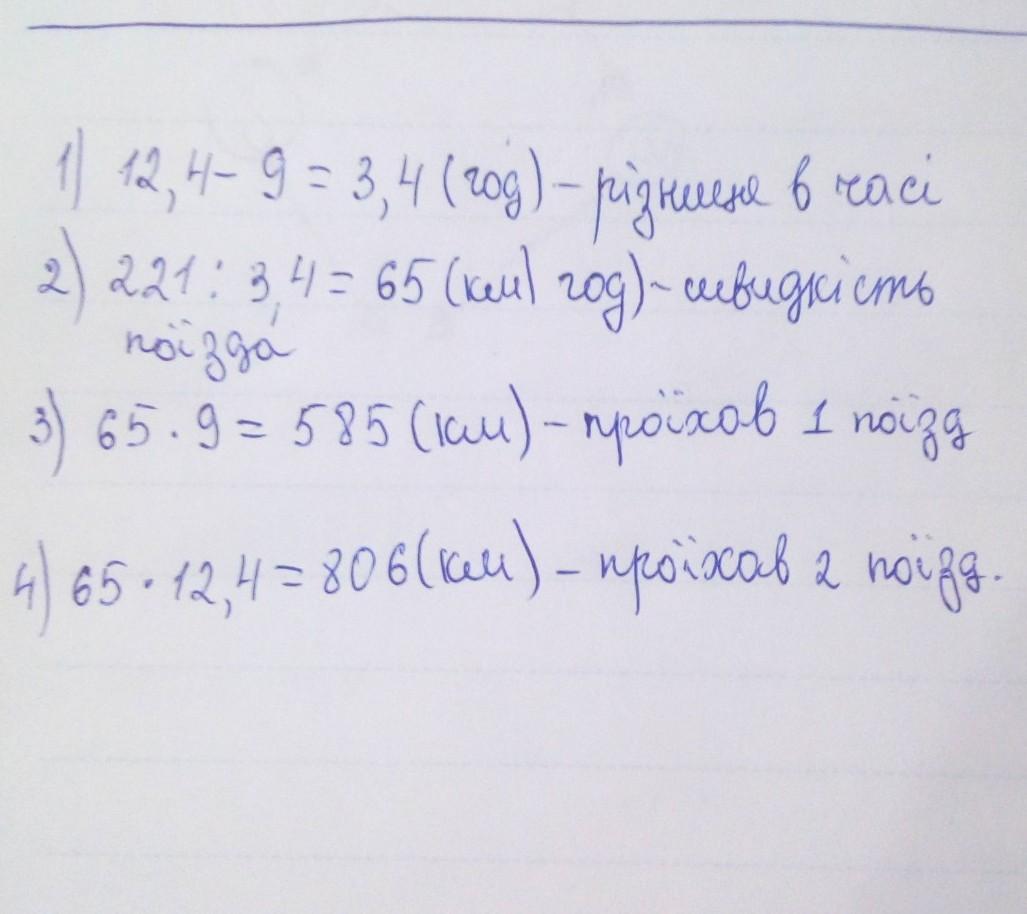 1) 12,4 - 9 = 3,4 (год) - різниця в часі
2) 221 : 3,4 = 65 (км/ год) - швидкість
поїзда
3) 65 · 9 = 585 (км) - проїхав 1 поїзд
4) 65 · 12,4 = 806 (км) - проїхав 2 поїзд.